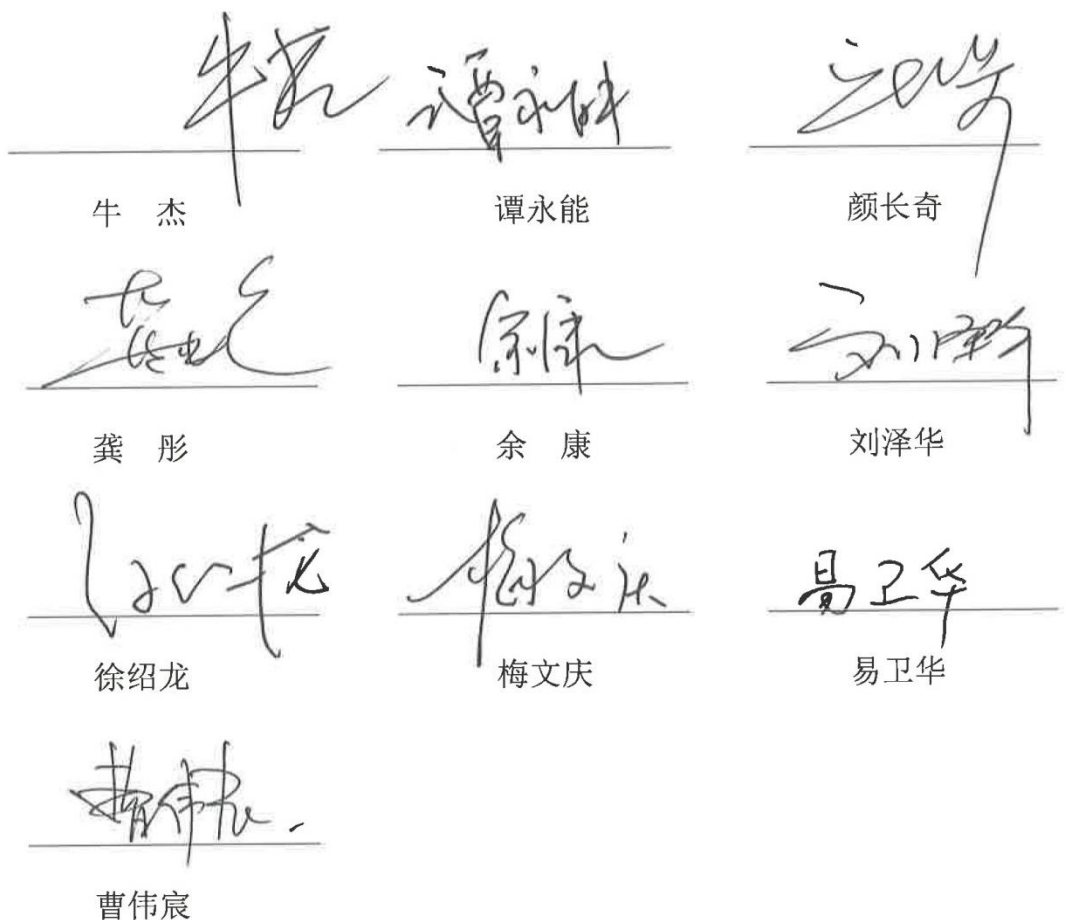 牛杰 谭永能 颜长奇
牛 杰 谭永能 颜长奇
龚彤 余康 刘泽华
龚 彤 余 康 刘泽华
徐绍龙 梅文庆 易卫华
徐绍龙 梅文庆 易卫华
曹伟宸
曹伟宸